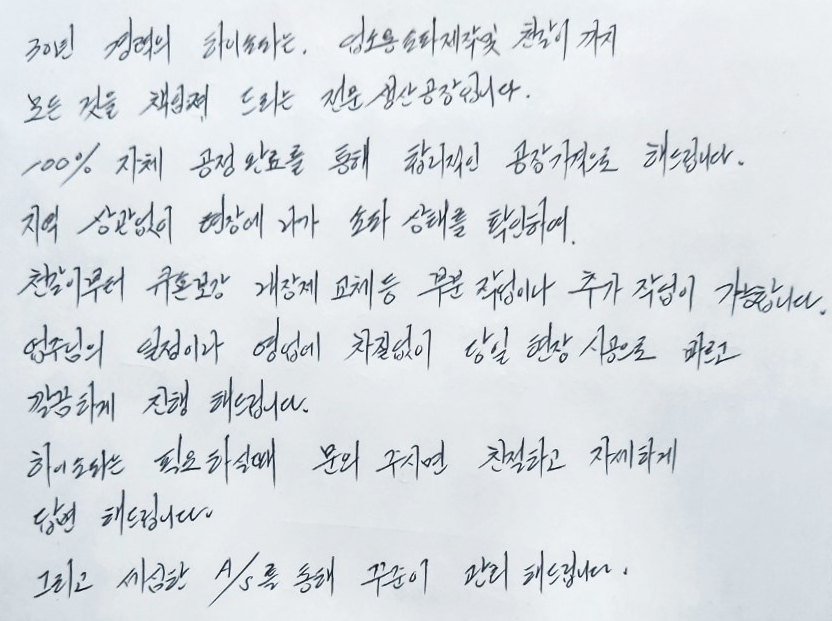 30년 경력의 하이소파는. 업소용소파제작및 천갈이 까지
모든 것을 책임져 드리는 전문 생산공장입니다.
100% 자체 공정 완료를 통해 합리적인 공장가격으로 해드립니다.
지역 상관없이 현장에 나가 소파 상태를 확인하여.
천갈이부터 쿠션보강 내장제 교체등 부분 작업이나 추가 작업이 가능합니다.
업주님의 일정이나 영업에 차질없이 당일 현장 시공으로 빠르고
깔끔하게 진행 해드립니다.
하이소파는 필요하실때 문의 주시면 친절하고 자세하게
답변 해드립니다.
그리고 세심한 A/S를 통해 꾸준이 관리 해드립니다.